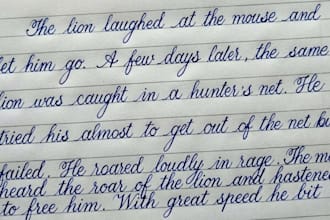 The lion laughed at the mouse and
let him go. A few days later, the same
lion was caught in a hunter's net. He
tried his almost to get out of the net bu
failed. He roared loudly in rage. The mo
heard the roar of the lion and hastene
to free him. With great speed he bit